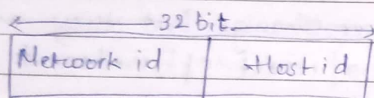 32 bit
Network id Host id